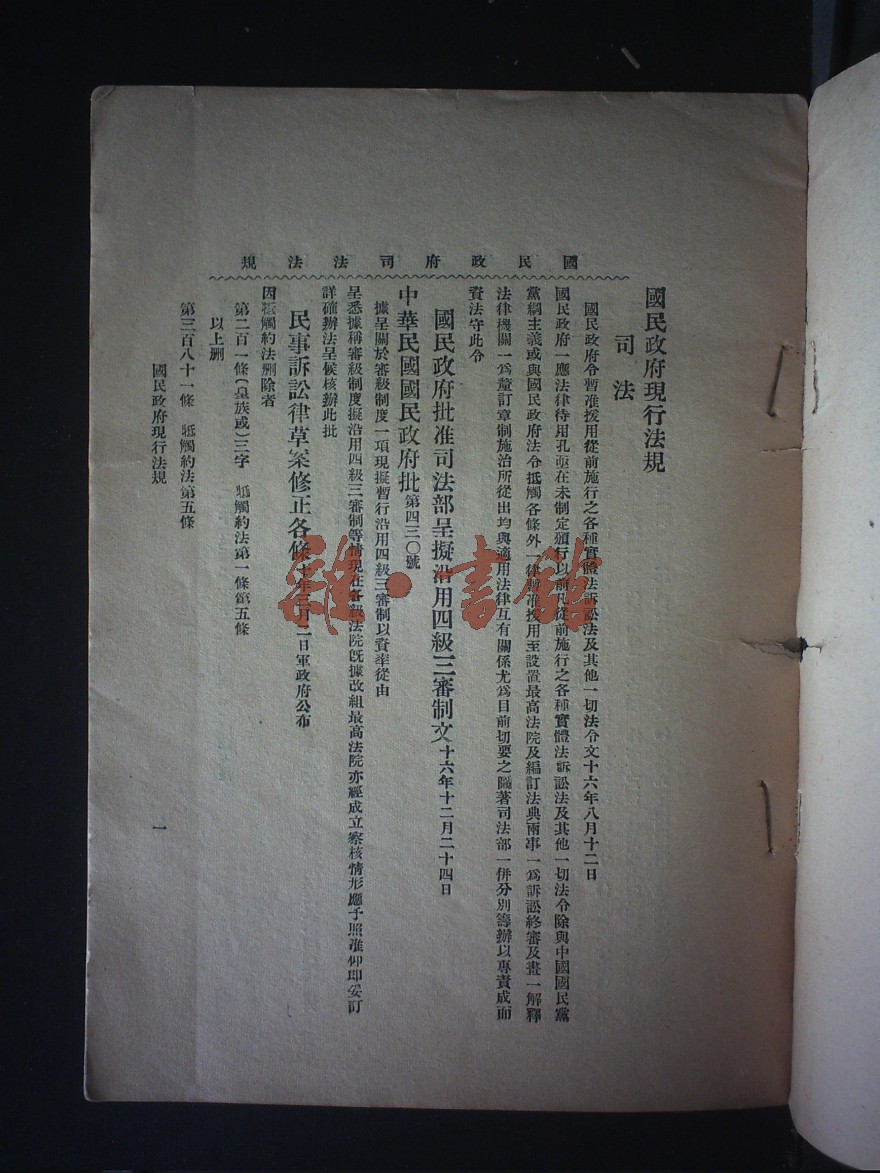 國民政府司法法規
國民政府現行法規
司法
國民政府令暫准援用從前施行之各種實體法訴訟法及其他一切法令文十六年八月十二日
國民政府一應法律待用孔亟在未制定頒行以前凡從前施行之各種實體法訴訟法及其他一切法令除與中國國民黨
黨綱主義或與國民政府法令抵觸各條外一律暫准援用至設置最高法院及編訂法典兩事一爲訴訟終審及畫一解釋
法律機關一爲釐訂章制施治所從出均與適用法律互有關係尤爲目前切要之圖著司法部一併分別籌辦以專責成而
資法守此令
國民政府批准司法部呈擬沿用四級三審制文十六年十二月二十四日
中華民國國民政府批第四三〇號
據呈關於審級制度一項現擬暫行沿用四級三審制以資率從由
呈悉據稱審級制度擬沿用四級三審制等情現在各級法院既據改組最高法院亦經成立察核情形應予照准仰即妥訂
詳確辦法呈候核辦此批
民事訴訟律草案修正各條十年三月二日軍政府公布
因牴觸約法刪除者
第二百一條(皇族或)三字 牴觸約法第一條第五條
以上刪
第三百八十一條 牴觸約法第五條
國民政府現行法規
一
雜·書館